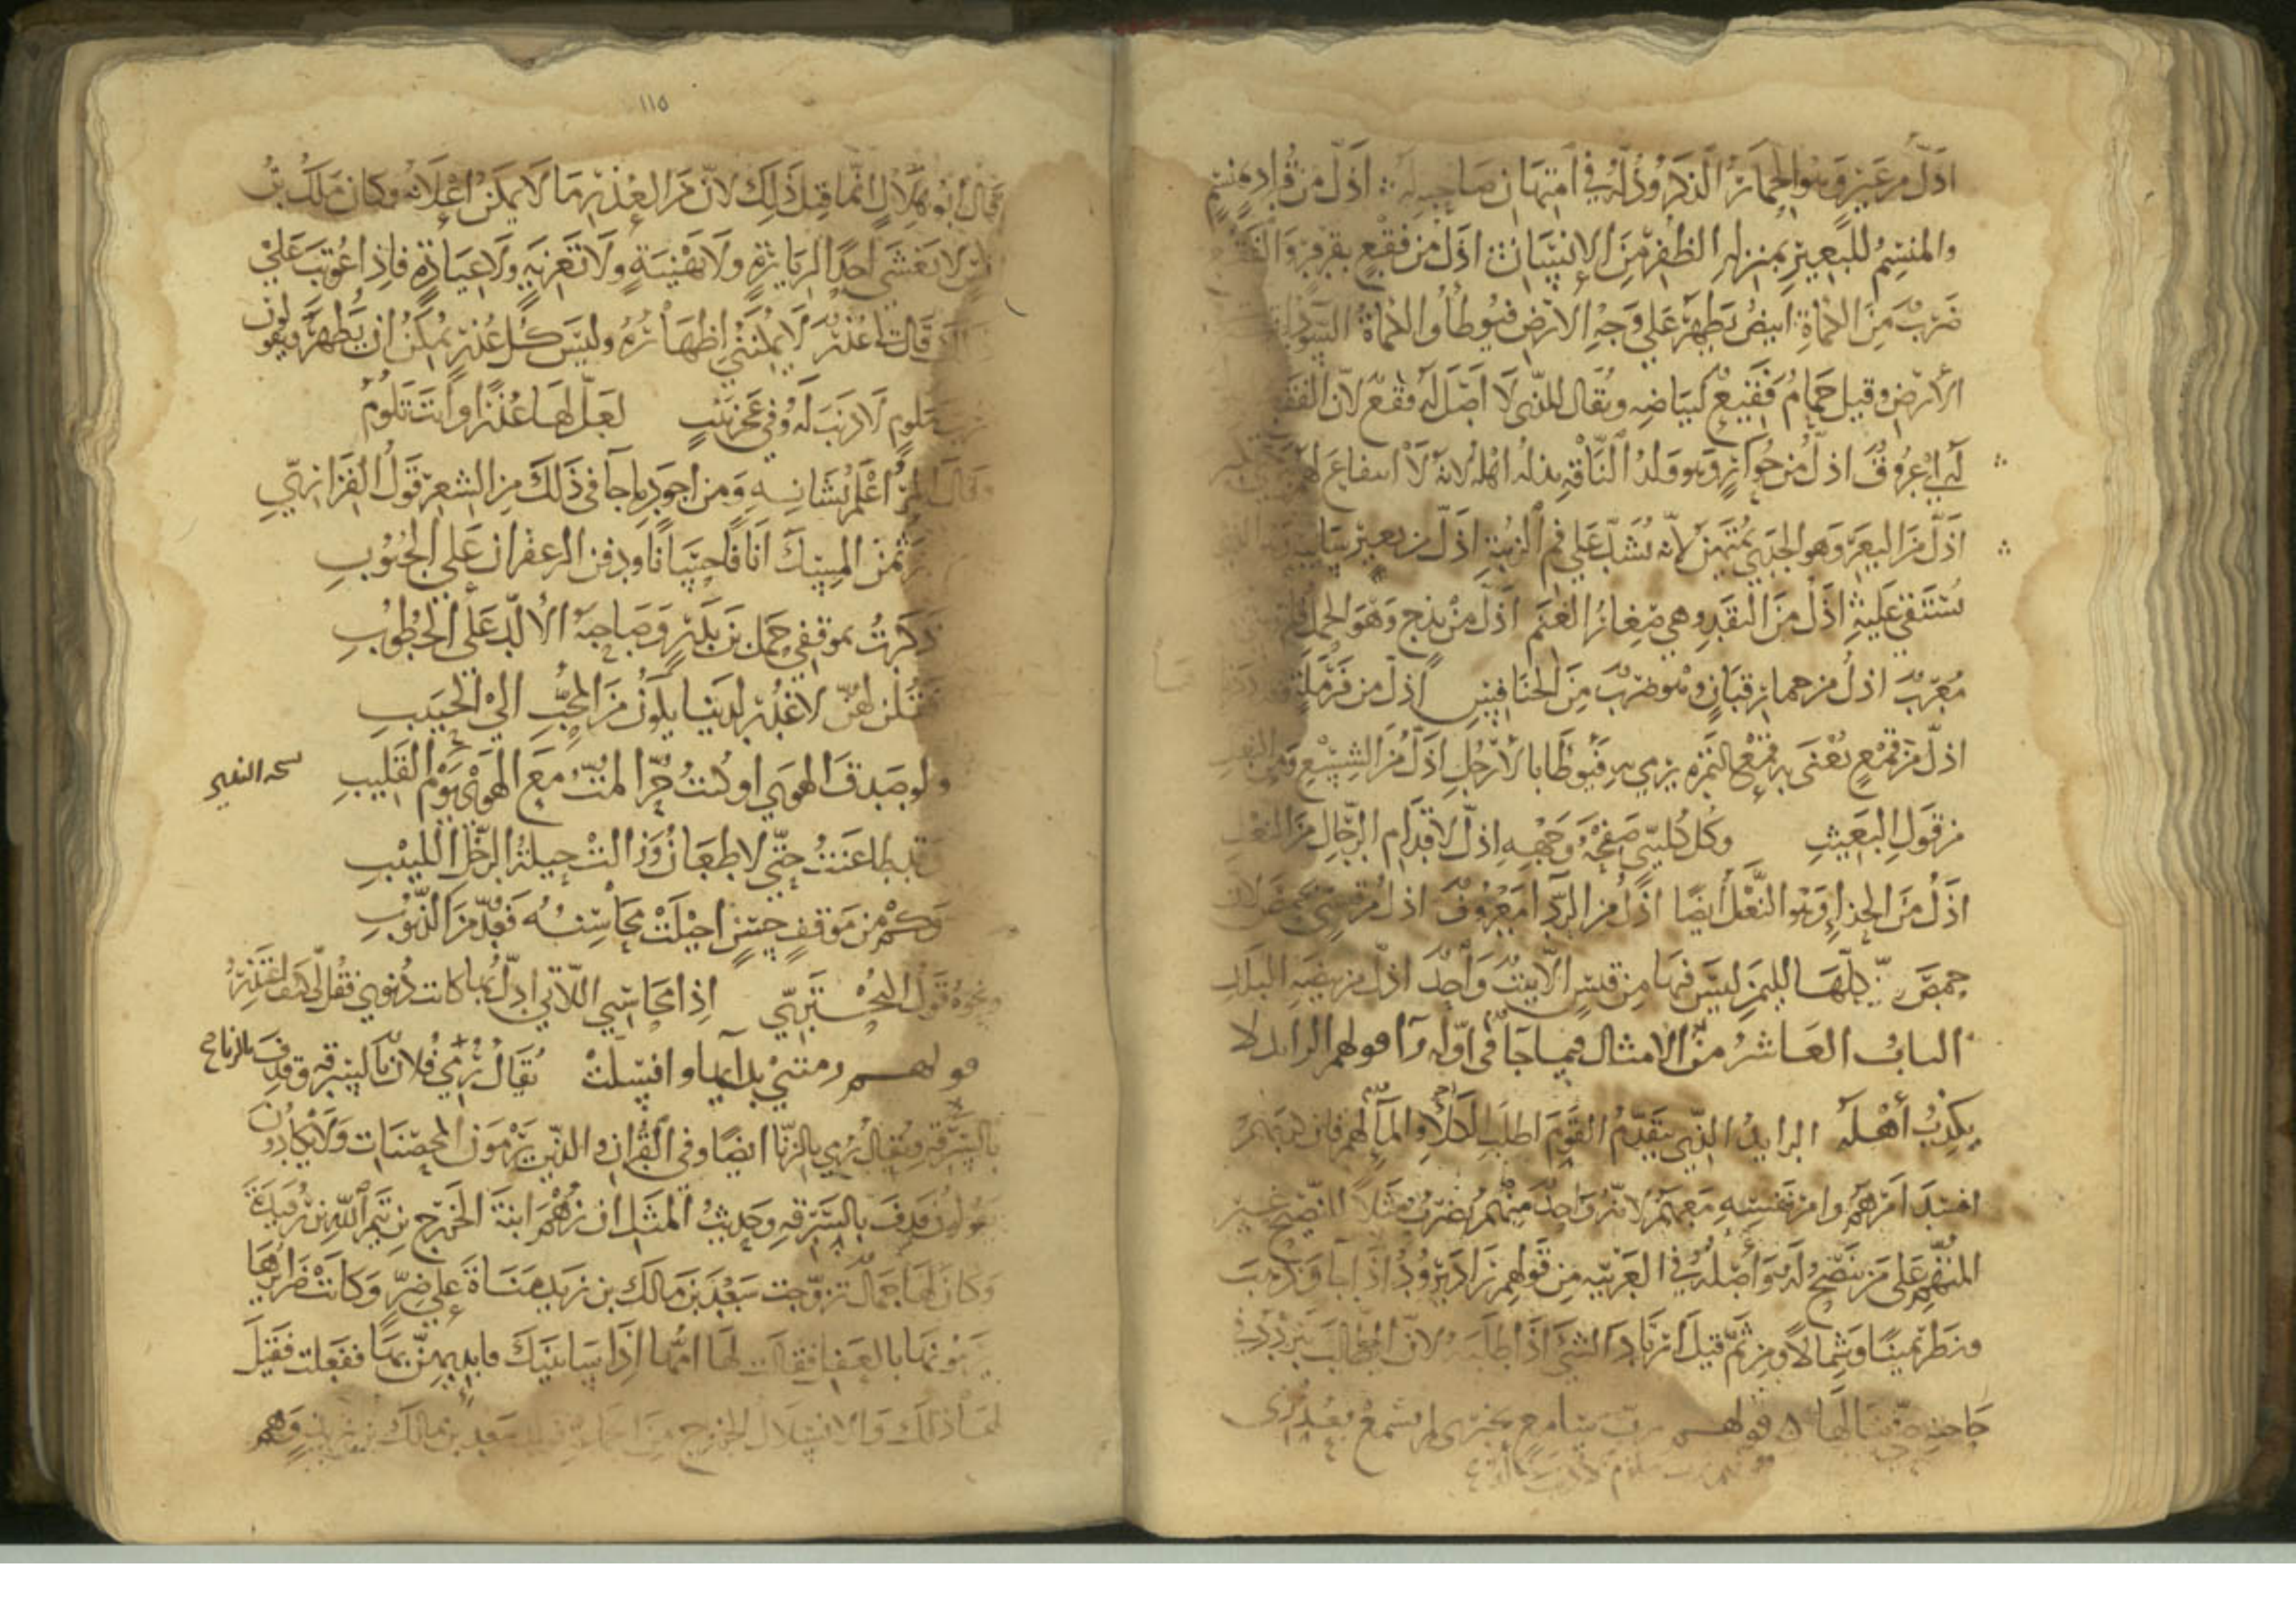 اذل من عير وهو الحمار الذكر وذله في امتهان صاحبه له اذل من قراد منسم
والمنسم للبعير بمنزله الظفر من الانسان اذل من فقع بقرقر والفقع
ضرب من الكماة ابيض يظهر على وجه الارض فيوطأ والكماة السود
الارض وقيل حمام فقيع لبياضه ويقال للذي لا اصل له فقع لان الفقع
له اي عروق اذل من حوار وهو ولد الناقة لانه لا انتفاع لهم
اذل من البعر وهو الجدي يمتهن لانه يشد على فم الزبية اذل من بعير سانية
يستقي عليه اذل من النقد وهي صغار الغنم اذل من بذج وهو الحمل
معرب اذل من حمار قبان وهو ضرب من الخنافس اذل من قرملة
اذل من قمع يعنى به قمع التمرة يرمى به فيوطا بالارجل اذل من الشسع ومن النعل
من قول البعيث وكل كليبي صفيحة وجهه اذل لاقدام الرجال من النعل
اذل من الحذاء وهو النعل ايضا اذل من الرداء معروف اذل من قيسي بحمص لان
حمص كلها لليمن ليس فيها من قيس الا بيت واحد اذل من بيضة البلد
الباب العاشر من الامثال فيما جا في اوله را قولهم الرايد لا
يكذب أهله الرايد الذي يتقدم القوم لطلب الكلأ والماء لهم فان كذبهم
افسد امرهم وامر نفسه معهم لانه واحد منهم يضرب مثلا للنصيح غير
المتهم على من ينصح له واصله في العربيه من قولهم راد يرود اذا جا وذهب
ونظر يمينا وشمالا ومن ثم قيل ارتاد الشي اذا طلبه لان الطالب يتردد في
حاجته حتى ينالها قولهم رب سامع بخبري لم يسمع بعذري
رب ملوم لا ذنب له
١١٥
قال ابو هلال انما قيل ذلك لان من العذر ما لا يمكن اعلانه وكان ملك بن
انس لا يغشى احدا لزيارة ولا تهنية ولا تعزية ولا عيادة فاذا عوتب على
ذلك قال لي عذر لا يمكنني اظهاره وليس كل عذر يمكن ان يظهر ويقولون
رب ملوم لا ذنب له وفي عجز بيت لعل لها عذرا وانت تلوم
وقال المرء اعلم بشانه ومن اجود ما جا في ذلك من الشعر قول الفزاري
المسك انافا حسانا ودفن الزعفران على الجنوب
ذكرت بموقفي حمل بن بدر وصاحبه الالد على الخطوب
فقلن لهن لا عذر لدينا يكون من المحب الى الحبيب
ولو صدق الهوى او كنت حرا لمت مع الهوى يوم القليب
وقد طاعنت حتى لا طعان وزالت حيلة الرجل اللبيب
وكم من موقف حسن احيلت محاسنه فعد من الذنوب
ونحوه قول البحتري اذا محاسني اللاتي ادل بها كانت ذنوبي فقل لي كيف اعتذر
قولهم رمتني بدائها وانسلت يقال رمي فلان بالسرقه وقذف بالزنا
بالسرقه ويقال رمي بالزنا ايضا وفي القران والذين يرمون المحصنات ولا يكادون
يقولون قذف بالسرقه وحديث المثل ان رهم ابنة الخزرج بن تيم الله بن رفيدة
وكان لها جمال تزوجت سعد بن مالك بن زيد مناة على ضر وكانت ضرايرها
يرمونها بالعفل فقالت لها امها اذا ساببنك فابدئيهن بها ففعلت فقيل
لها ذلك والانسلال الخروج من الجماعة سعد بن مالك وهم